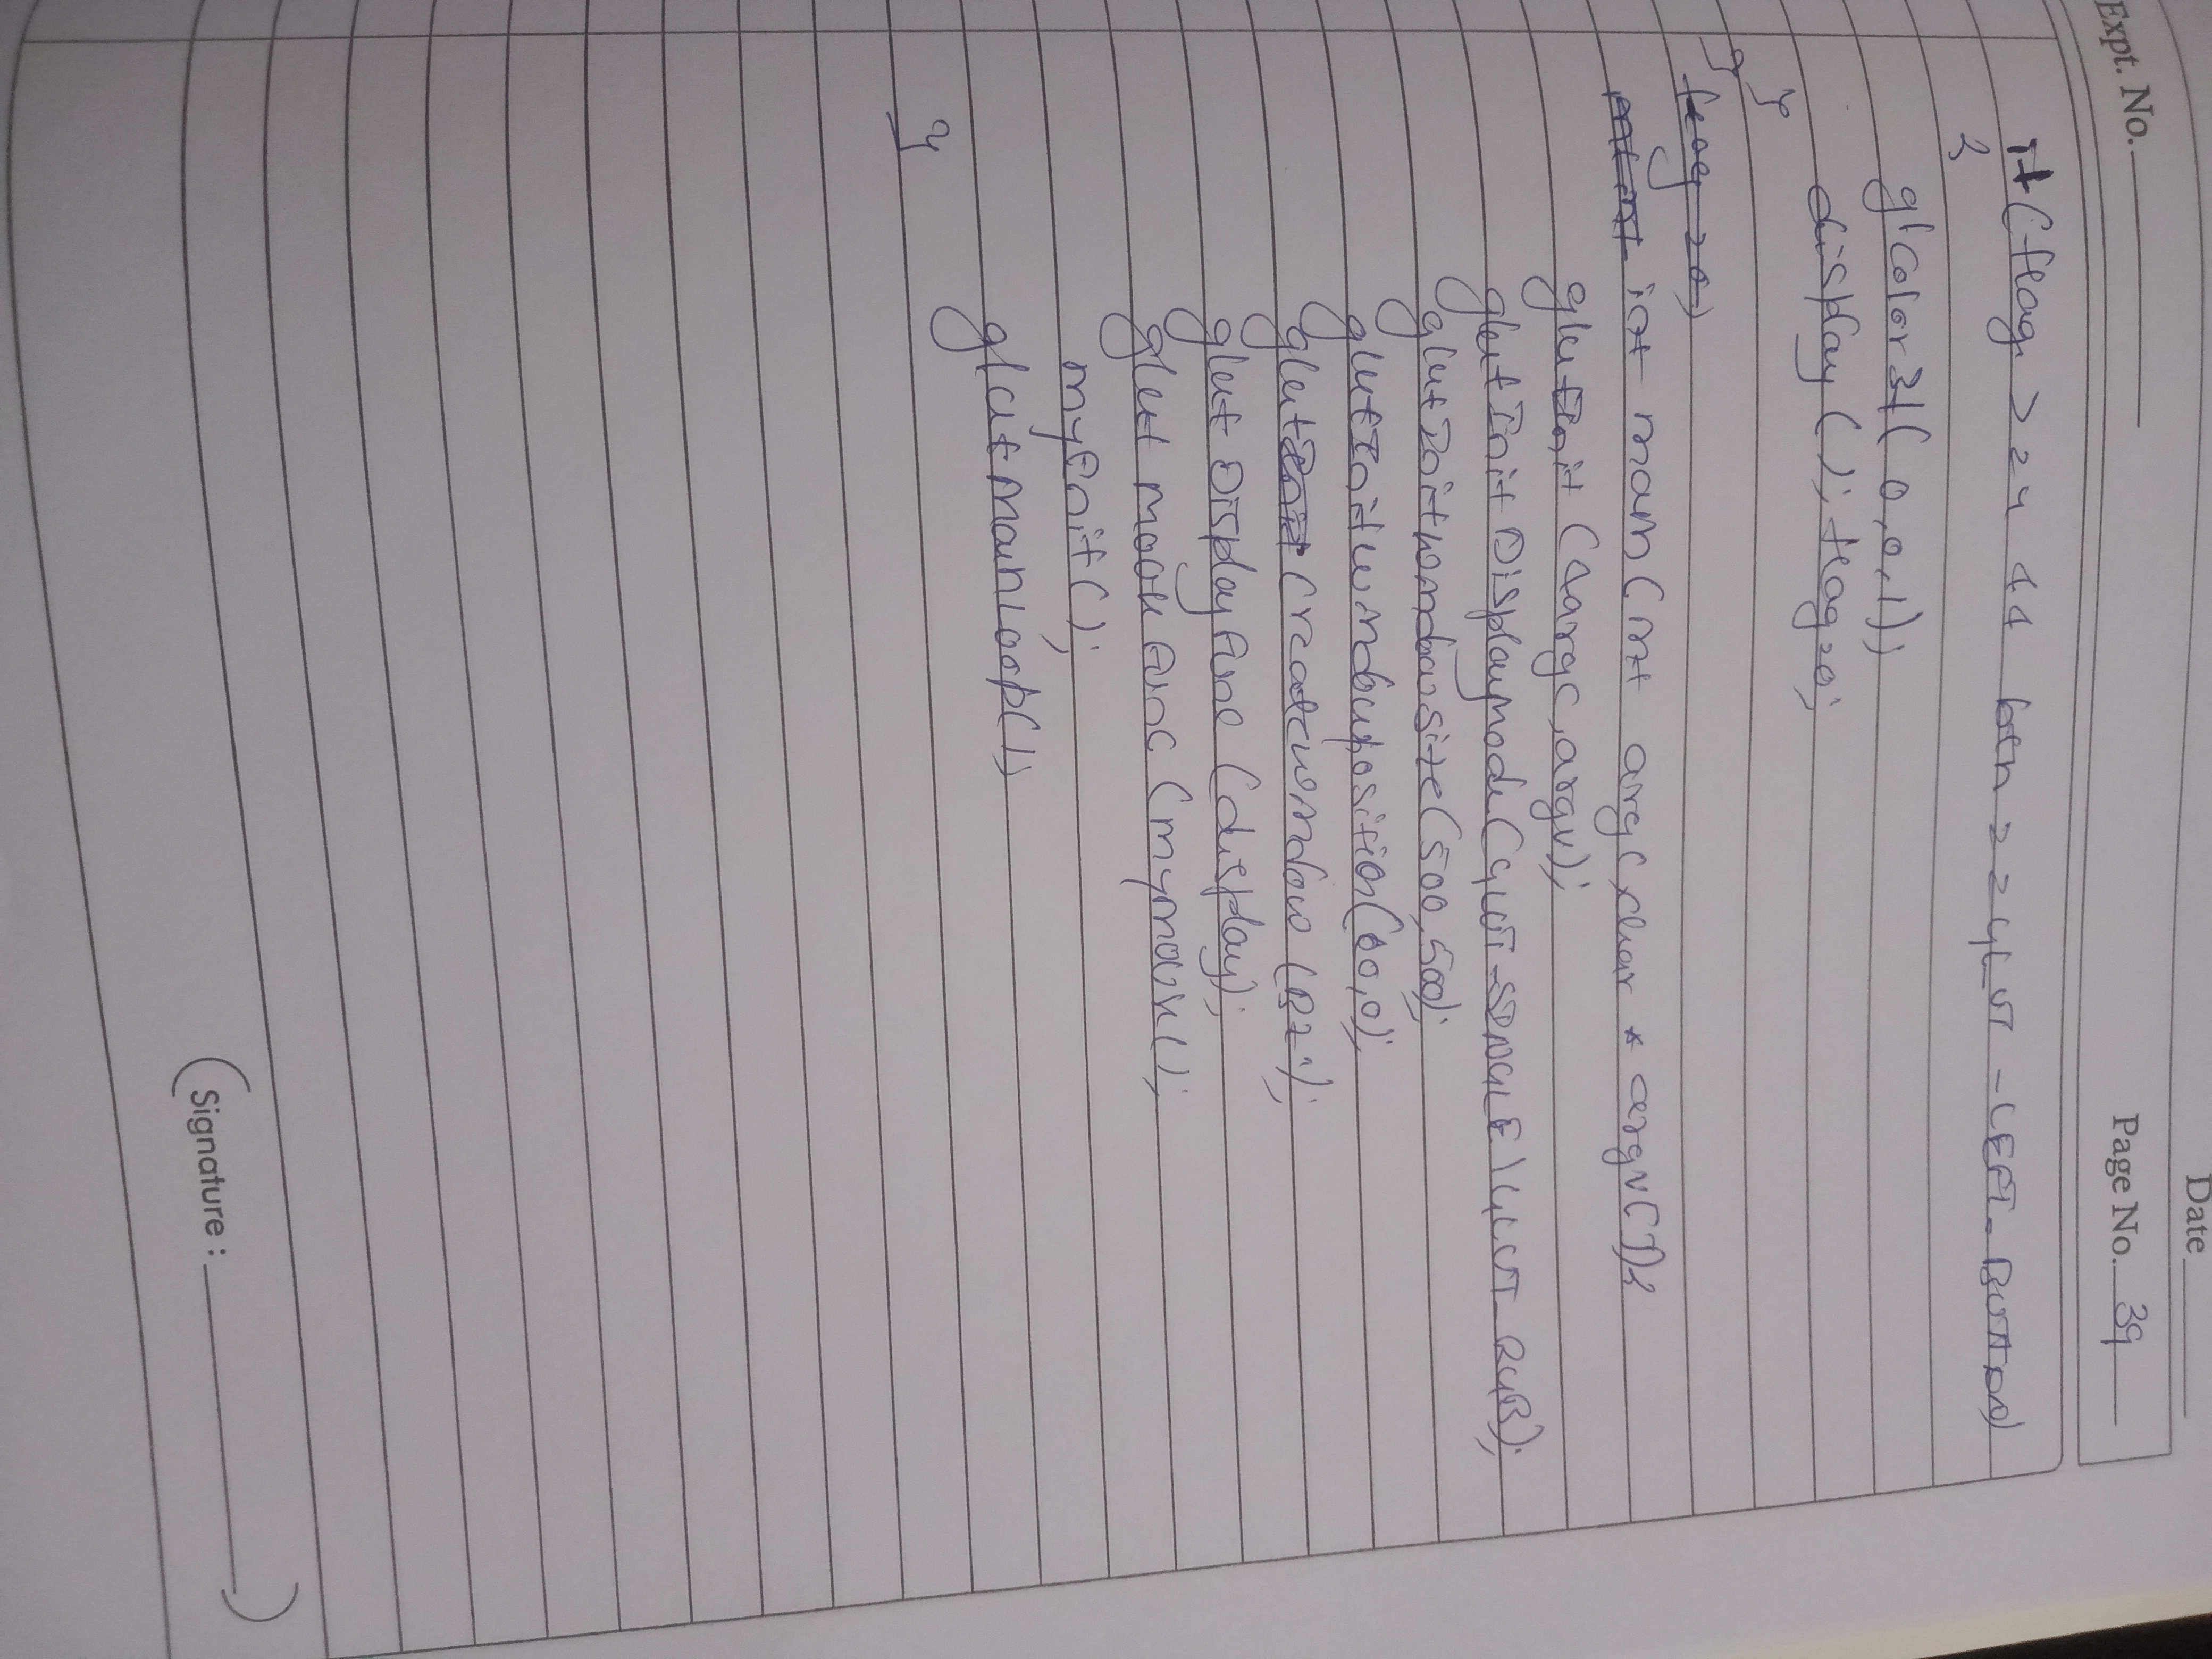 Date
Expt. No.
Page No. 39
if (flag == 4 && btn == GLUT_LEFT_BUTTON)
{
glColor3f(0,0,1);
display(); flag=0;
}
}
int main(int argc, char * argv[]){
glutInit(&argc, argv);
glutInitDisplayMode(GLUT_SINGLE | GLUT_RGB);
glutInitWindowSize(500,500);
glutInitWindowPosition(00,0);
glutCreateWindow(
glutDisplayFunc(display);
glutMouseFunc(mymouse);
myInit();
glutMainLoop();
}
Signature :